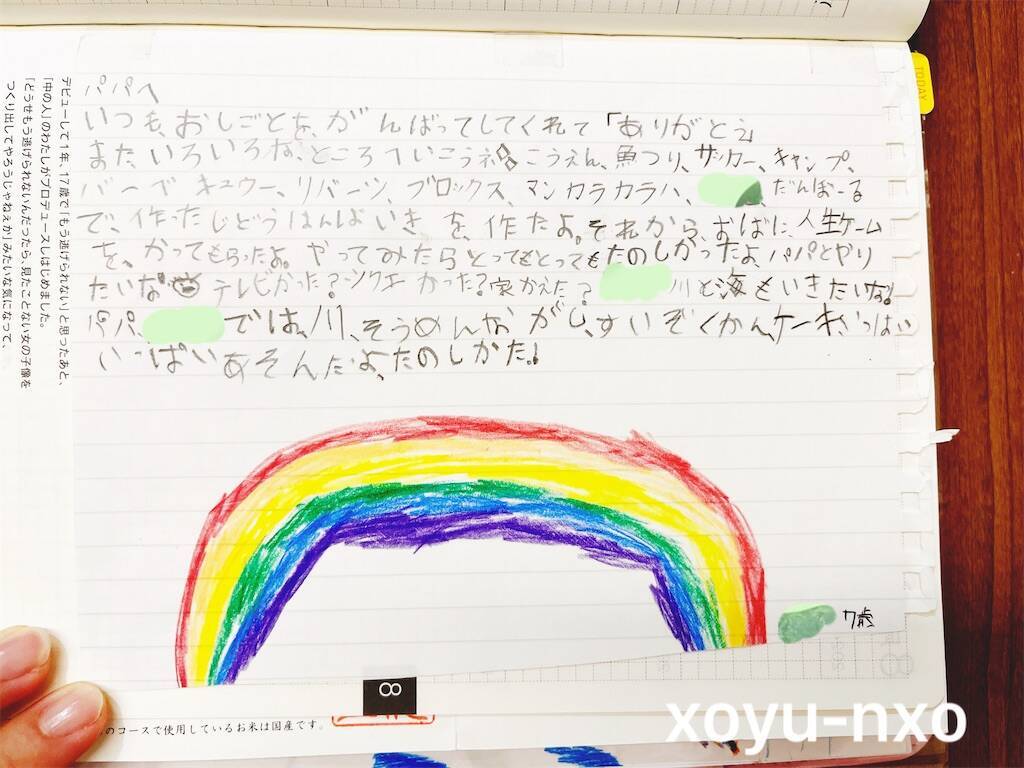 パパへ
いつも、おしごとを、がんばってしてくれて「ありがとう」
また、いろいろな、ところへいこうね こうえん、魚つり、サッカー、キャンプ、
バーベキュウー、リバーツ、ブロックス、マンカラカラハ、 だんぼーる
で、作ったじどうはんばいきを、作たよ。それから、おばに、人生ゲーム
を、かってもらったよ。やってみたらとってもとってもたのしかったよ、パパとやり
たいな テレビかった？ソクエかった？家かえた？ 川と海もいきたいな!
パパ、 では、川、そうめんながし、すいぞくかん、ケーキ、いっぱい
いっぱいあそんだよ、たのしかた!
7歳
デビューして1年、17歳で「もう逃げられない」と思ったあと、
「中の人」のわたしがプロデュースしはじめました。
「どうせもう逃げられないんだったら、見たことない女の子像を
つくり出してやろうじゃねぇか」みたいな気になって、
TODAY
8
のコースで使用しているお米は国産です。
xoyu-nxo